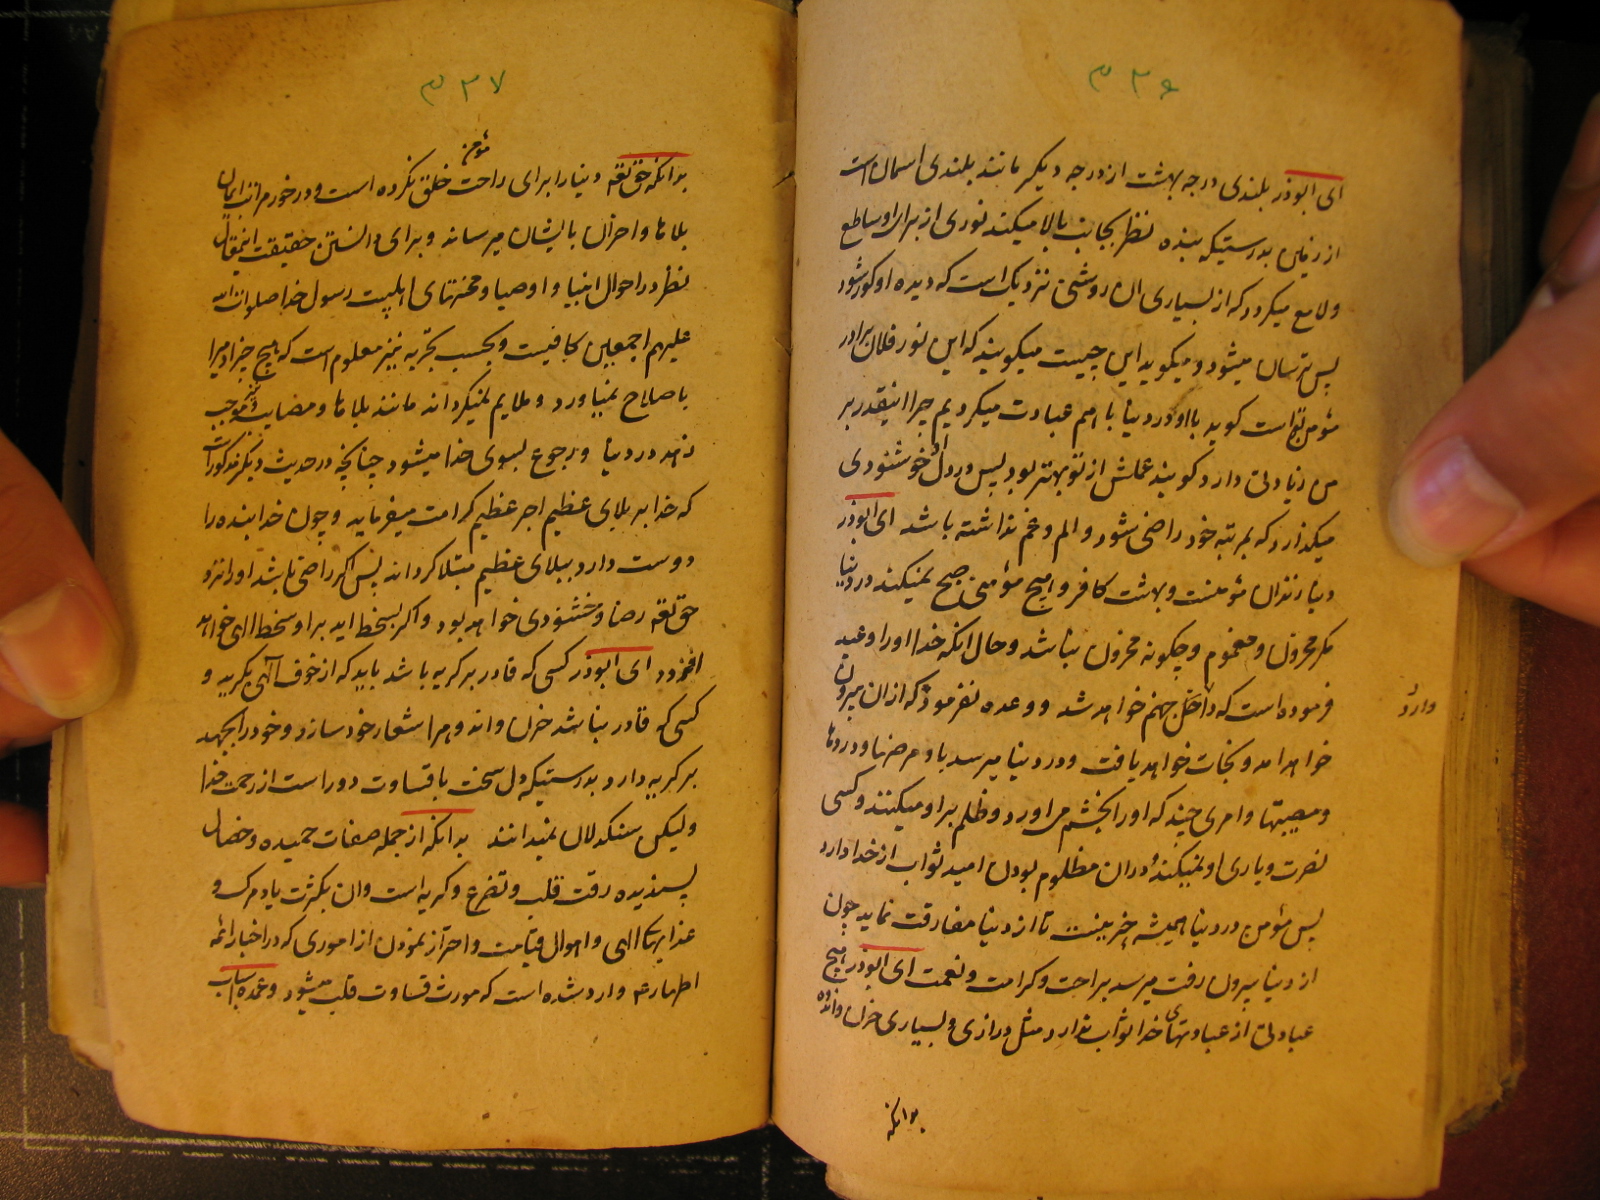 ۳۲۶
ای ابوذر بلندی درجه بهشت از درجه دیگر مانند بلندی اسمان است
از زمین بدرستیکه بنده نظر بجانب بالا میکند نوری از برای او ساطع
و لامع میکردد که از بسیاری ان روشنی نزدیک است که دیده او کور شود
پس ترسان میشود و میکوید این چیست میکویند که این نور فلان برادر
مؤمن تو است کوید با او در دنیا با هم عبادت میکردیم چرا اینقدر بر
من زیادتی دارد کویند عملش از تو بهتر بود پس در دل او خوشنودی
میکذارد که بمرتبه خود راضی شود و الم و غم نداشته باشد ای ابوذر
دنیا زندان مؤمنست و بهشت کافر و هیچ مؤمنی صبح نمیکند در دنیا
مکر محزون و مغموم و چکونه محزون نباشد و حال انکه خدا او را وعید
فرموده است که داخل جهنم خواهد شد و وعده نفرموده که از ان بیرون
وارد
خواهد امد و نجات خواهد یافت و در دنیا میرسد باو مرضها و دردها
و مصیبتها و امری چند که او را بخشم می اورد و ظلم بر او میکنند و کسی
نصرت و یاری او نمیکند و در ان مظلوم بودن امید ثواب از خدا دارد
پس مؤمن در دنیا همیشه حزینست تا از دنیا مفارقت نماید چون
از دنیا بیرون رفت میرسد براحت و کرامت و نعمت ای ابوذر هیچ
عبادتی از عبادتهای خدا ثواب ندارد مثل درازی و بسیاری حزن و اندوه
بدانکه
۳۲۷
بدانکه حق تعه دنیا را برای راحت مؤمن خلق نکرده است و در خور مراتب ایمان
بلاها و احزان بایشان میرساند و برای دانستن حقیقت اینمقال
نظر در احوال انبیا و اوصیا و محنتهای اهلبیت رسول خدا صلوات الله
علیهم اجمعین کافیست و بحسب تجربه نیز معلوم است که هیچ چیز ادمیرا
باصلاح نمیاورد و ملایم نمیکرداند مانند بلاها و مصایب و نیز موجب
زهد در دنیا و رجوع بسوی خدا میشود چنانچه در حدیث دیکر مذکور است
که خدا به بلای عظیم اجر عظیم کرامت میفرماید و چون خدا بنده را
دوست دارد ببلای عظیم مبتلا کرداند پس اکر راضی باشد او را نزد
حق تعه رضا و خشنودی خواهد بود و اکر بسخط اید بر او سخط الهی خواهد
افزود ای ابوذر کسی که قادر بر کریه باشد باید که از خوف الهی بکرید و
کسی که قادر نباشد حزن و اندوه را شعار خود سازد و خود را بجهد
بر کریه دارد بدرستیکه دل سخت با قساوت دور است از رحمت خدا
و لیکن سنکدلان نمیدانند بدانکه از جمله صفات حمیده و خصال
پسندیده رقت قلب و تضرع و کریه است و ان بکثرت یاد مرک و
عذابهای الهی و اهوال قیامت و احتراز نمودن از اموری که در اخبار ائمه
اطهار عه وارد شده است که مورث قساوت قلب میشود و عمده اسباب